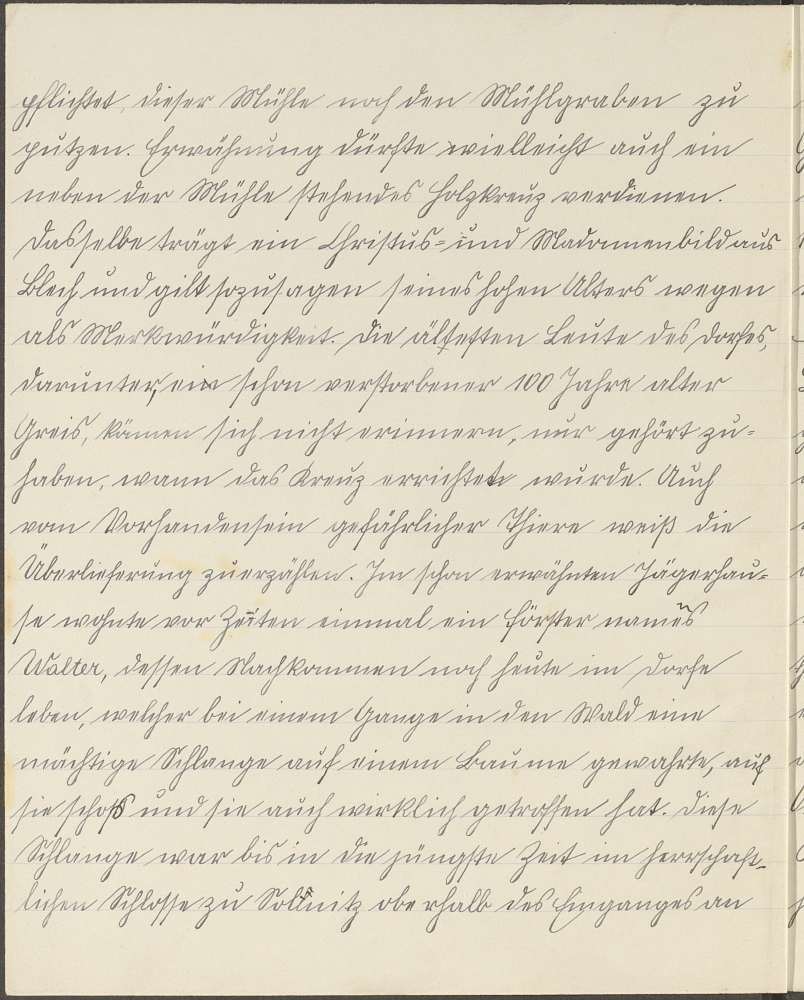 pflichtet, dieser Mühle noch den Mühlgraben zu
putzen. Erwähnung dürfte vielleicht auch ein
neben der Mühle stehendes Holzkreuz verdienen.
Dasselbe trägt ein Christus- und Madonnenbild aus
Blech und gilt sozusagen seines hohen Alters wegen
als Merkwürdigkeit. Die ältesten Leute des Dorfes,
darunter, ein schon verstorbener 100 Jahre alter
Greis, können sich nicht erinnern, nur gehört zu-
haben, wann das Kreuz errichtet wurde. Auch
vom Vorhandensein gefährlicher Thiere weiß die
Überlieferung zu erzählen. Im schon erwähnten Jägerhau-
se wohnte vor Zeiten einmal ein Förster namens
Walter, dessen Nachkommen noch heute im Dorfe
leben, welcher bei einem Gange in den Wald eine
mächtige Schlange auf einem Baume gewahrte, auf
sie schoß und sie auch wirklich getroffen hat. Diese
Schlange war bis in die jüngste Zeit im herrschaft-
lichen Schlosse zu oberhalb des Einganges an